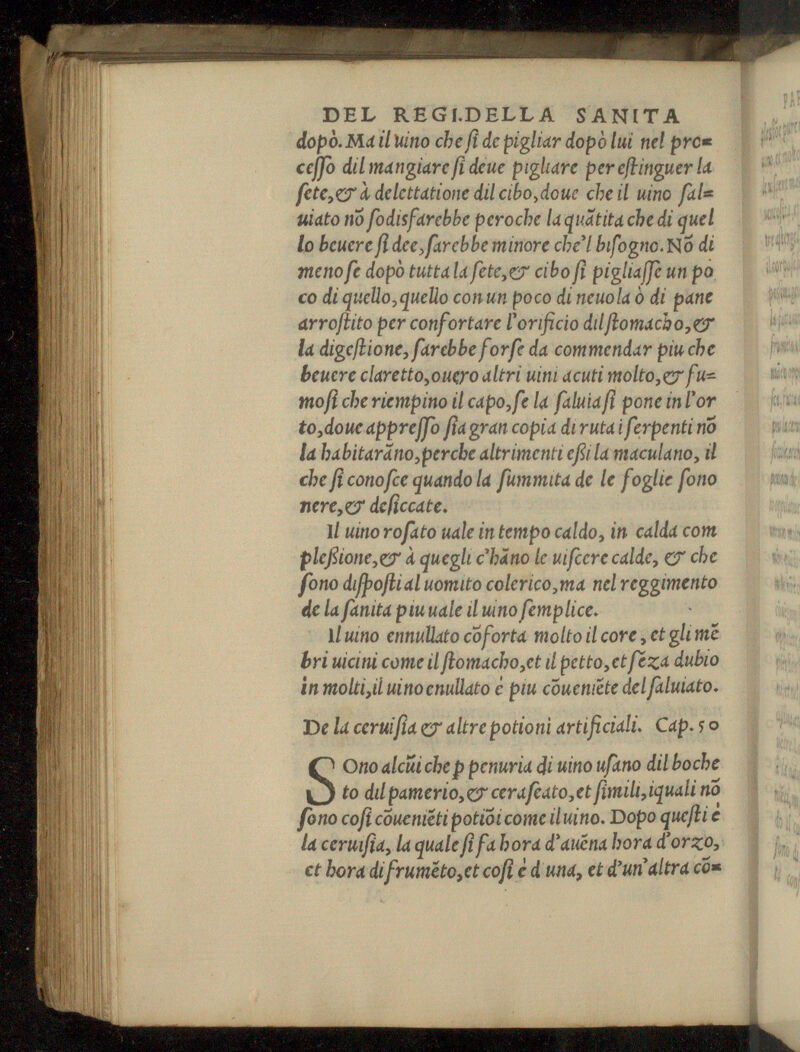 DEL REGI.DELLA SANITA
dopò. Ma il uino che ſi de pigliar dopò lui nel pro=
ceſſo dil mangiare ſi deue pigliare per eſtinguer la
ſete,& à delettatione dil cibo,doue che il uino ſal=
uiato nõ ſodisfarebbe peroche la quãtita che di quel
lo beuere ſi dee,farebbe minore che'l biſogno. Nõ di
meno ſe dopò tutta la ſete,& cibo ſi pigliaſſe un po
co di quello,quello con un poco di neuola ò di pane
arroſtito per confortare l'orificio dil ſtomacho,&
la digeſtione, farebbe forſe da commendar piu che
beuere claretto,ouero altri uini acuti molto,& fu=
moſi che riempino il capo,ſe la ſaluia ſi pone in l'or
to,doue appreſſo ſia gran copia di ruta i ſerpenti nõ
la habitarãno,perche altrimenti eſsi la maculano, il
che ſi conoſce quando la ſummita de le foglie ſono
nere,& deſiccate.
Il uino roſato uale in tempo caldo, in calda com
pleſsione,& à quegli c'hãno le uiſcere calde, & che
ſono diſpoſti al uomito colerico,ma nel reggimento
de la ſanita piu uale il uino ſemplice.
Il uino ennullato cõforta molto il core, et gli mẽ
bri uicini come il ſtomacho,et il petto,et ſẽza dubio
in molti,il uino enullato è piu cõueniẽte del ſaluiato.
De la ceruiſia & altre potioni artificiali. Cap. 50
SOno alcũi che p penuria di uino uſano dil boche
to dil pamerio,& ceraſeato,et ſimili,iquali nõ
ſono coſi cõueniẽti potiõi come il uino. Dopo queſti è
la ceruiſia, la quale ſi fa hora d'auẽna hora d'orzo,
et hora di frumẽto,et coſi è d'una, et d'un'altra cõ=